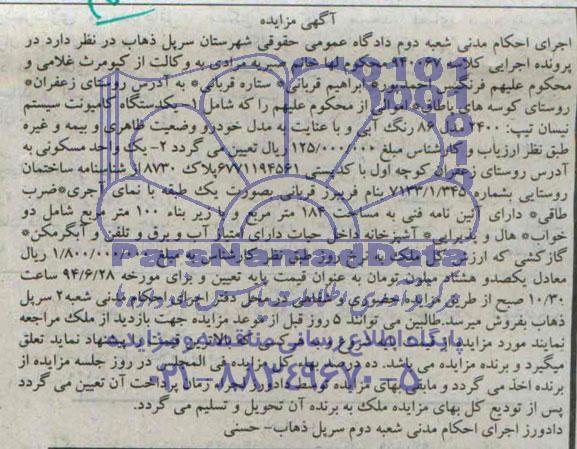 آگهی مزایده
اجرای احکام مدنی شعبه دوم دادگاه عمومی حقوقی شهرستان سرپل ذهاب در نظر دارد در
پرونده اجرایی کلاسه ۹۴۰۰۶۷ محکوم لها خانم مرادی به وکالت از کیومرث غلامی و
محکوم علیهم فرنگیس ابراهیم قربانی* ستاره قربانی* به آدرس روستای زعفران*
روستای کوسه های یاطاق* اموالی از محکوم علیهم را که شامل ۱-یکدستگاه کامیونت سیستم
نیسان تیپ: ۲۴۰۰ مدل ۸۶ رنگ آبی و با عنایت به مدل خودرو وضعیت ظاهری و بیمه و غیره
طبق نظر ارزیاب و کارشناس مبلغ ۱۲۵/۰۰۰/۰۰۰ ریال تعیین می گردد ۲- یک واحد مسکونی به
آدرس روستای زعفران کوچه اول با کدپستی ۶۷۷۱۱۹۴۵۶۱ پلاک ۸۷۳۰ از شناسنامه ساختمان
روستایی بشماره ۷۱۳۳/۱/۳۴۵ بنام فریبرز قربانی بصورت یک طبقه با نمای آجری*ضرب
طاقی* دارای آئین نامه فنی به مساحت ۱۸۴ متر مربع و با زیر بنای ۱۰۰ متر مربع شامل دو
خواب* هال و پذیرایی* آشپزخانه داخل حیات دارای امتیاز آب و برق و تلفن و آبگرمکن*
گازکشی که ارزش کل ملک به نرخ روز طبق نظر کارشناس به مبلغ ۱/۸۰۰/۰۰۰/۰۰۰ ریال
معادل یکصدو هشتاد میلون تومان به عنوان قیمت پایه تعیین و برای مورخه ۹۴/۶/۲۸ ساعت
۱۰/۳۰ صبح از طریق مزایده حضوری و شفاهی در محل دفتر اجرای احکام مدنی شعبه ۲ سرپل
ذهاب بفروش میرسد طالبین می توانند ۵ روز قبل از موعد مزایده جهت بازدید از ملک مراجعه
نمایند مورد مزایده از قیمت پایه شروع و به کسی که بالاترین قیمت را پیشنهاد نماید تعلق
میگیرد و برنده مزایده می باشد. ده درصد بهاء کل مزایده فی المجلس در روز جلسه مزایده از
برنده اخذ می گردد و مابقی بهای مزایده توسط دادورز اجراء زمان پرداخت آن تعیین می گردد
پس از تودیع کل بهای مزایده ملک به برنده آن تحویل و تسلیم می گردد.
دادورز اجرای احکام مدنی شعبه دوم سرپل ذهاب- حسنی
ParsNamadData
پایگاه اطلاع رسانی مناقصه و مزایده
۰۲۱-۸۸۳۴۹۶۷۰-۵